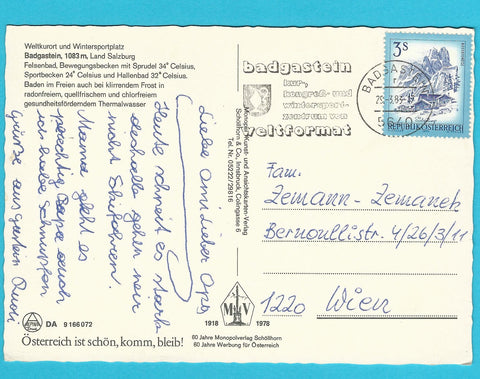 Weltkurort und Wintersportplatz
Badgastein, 1083 m, Land Salzburg
Felsenbad, Bewegungsbecken mit Sprudel 34° Celsius,
Sportbecken 24° Celsius und Hallenbad 32° Celsius.
Baden im Freien auch bei klirrendem Frost in
radonfreiem, quellfrischem und chlorfreiem
gesundheitsförderndem Thermalwasser
Liebe Omi Lieber Opa,
Heute schneit es stark
deshalb gehen wir
nicht Schifahren.
Mama geht es
prächtig Papa auch
wir habe Schnupfen
Grüsse aus
DA 9 166 072
Österreich ist schön, komm, bleib!
1918
1978
60 Jahre Monopolverlag Schöllhorn
60 Jahre Werbung für Österreich
Monopol Kunst- und Ansichtskarten-Verlag
Schöllhorn & Co., Innsbruck, Colingasse 6
Tel. Nr. 05222/29816
badgastein
kur-,
kongreß- und
wintersport-
zentrum von
weltformat
BADGASTEIN
5640
3 S
REPUBLIK ÖSTERREICH
Fam.
Zemann-Zemanek
Bernoullistr. 4/26/3/11
1220 Wien